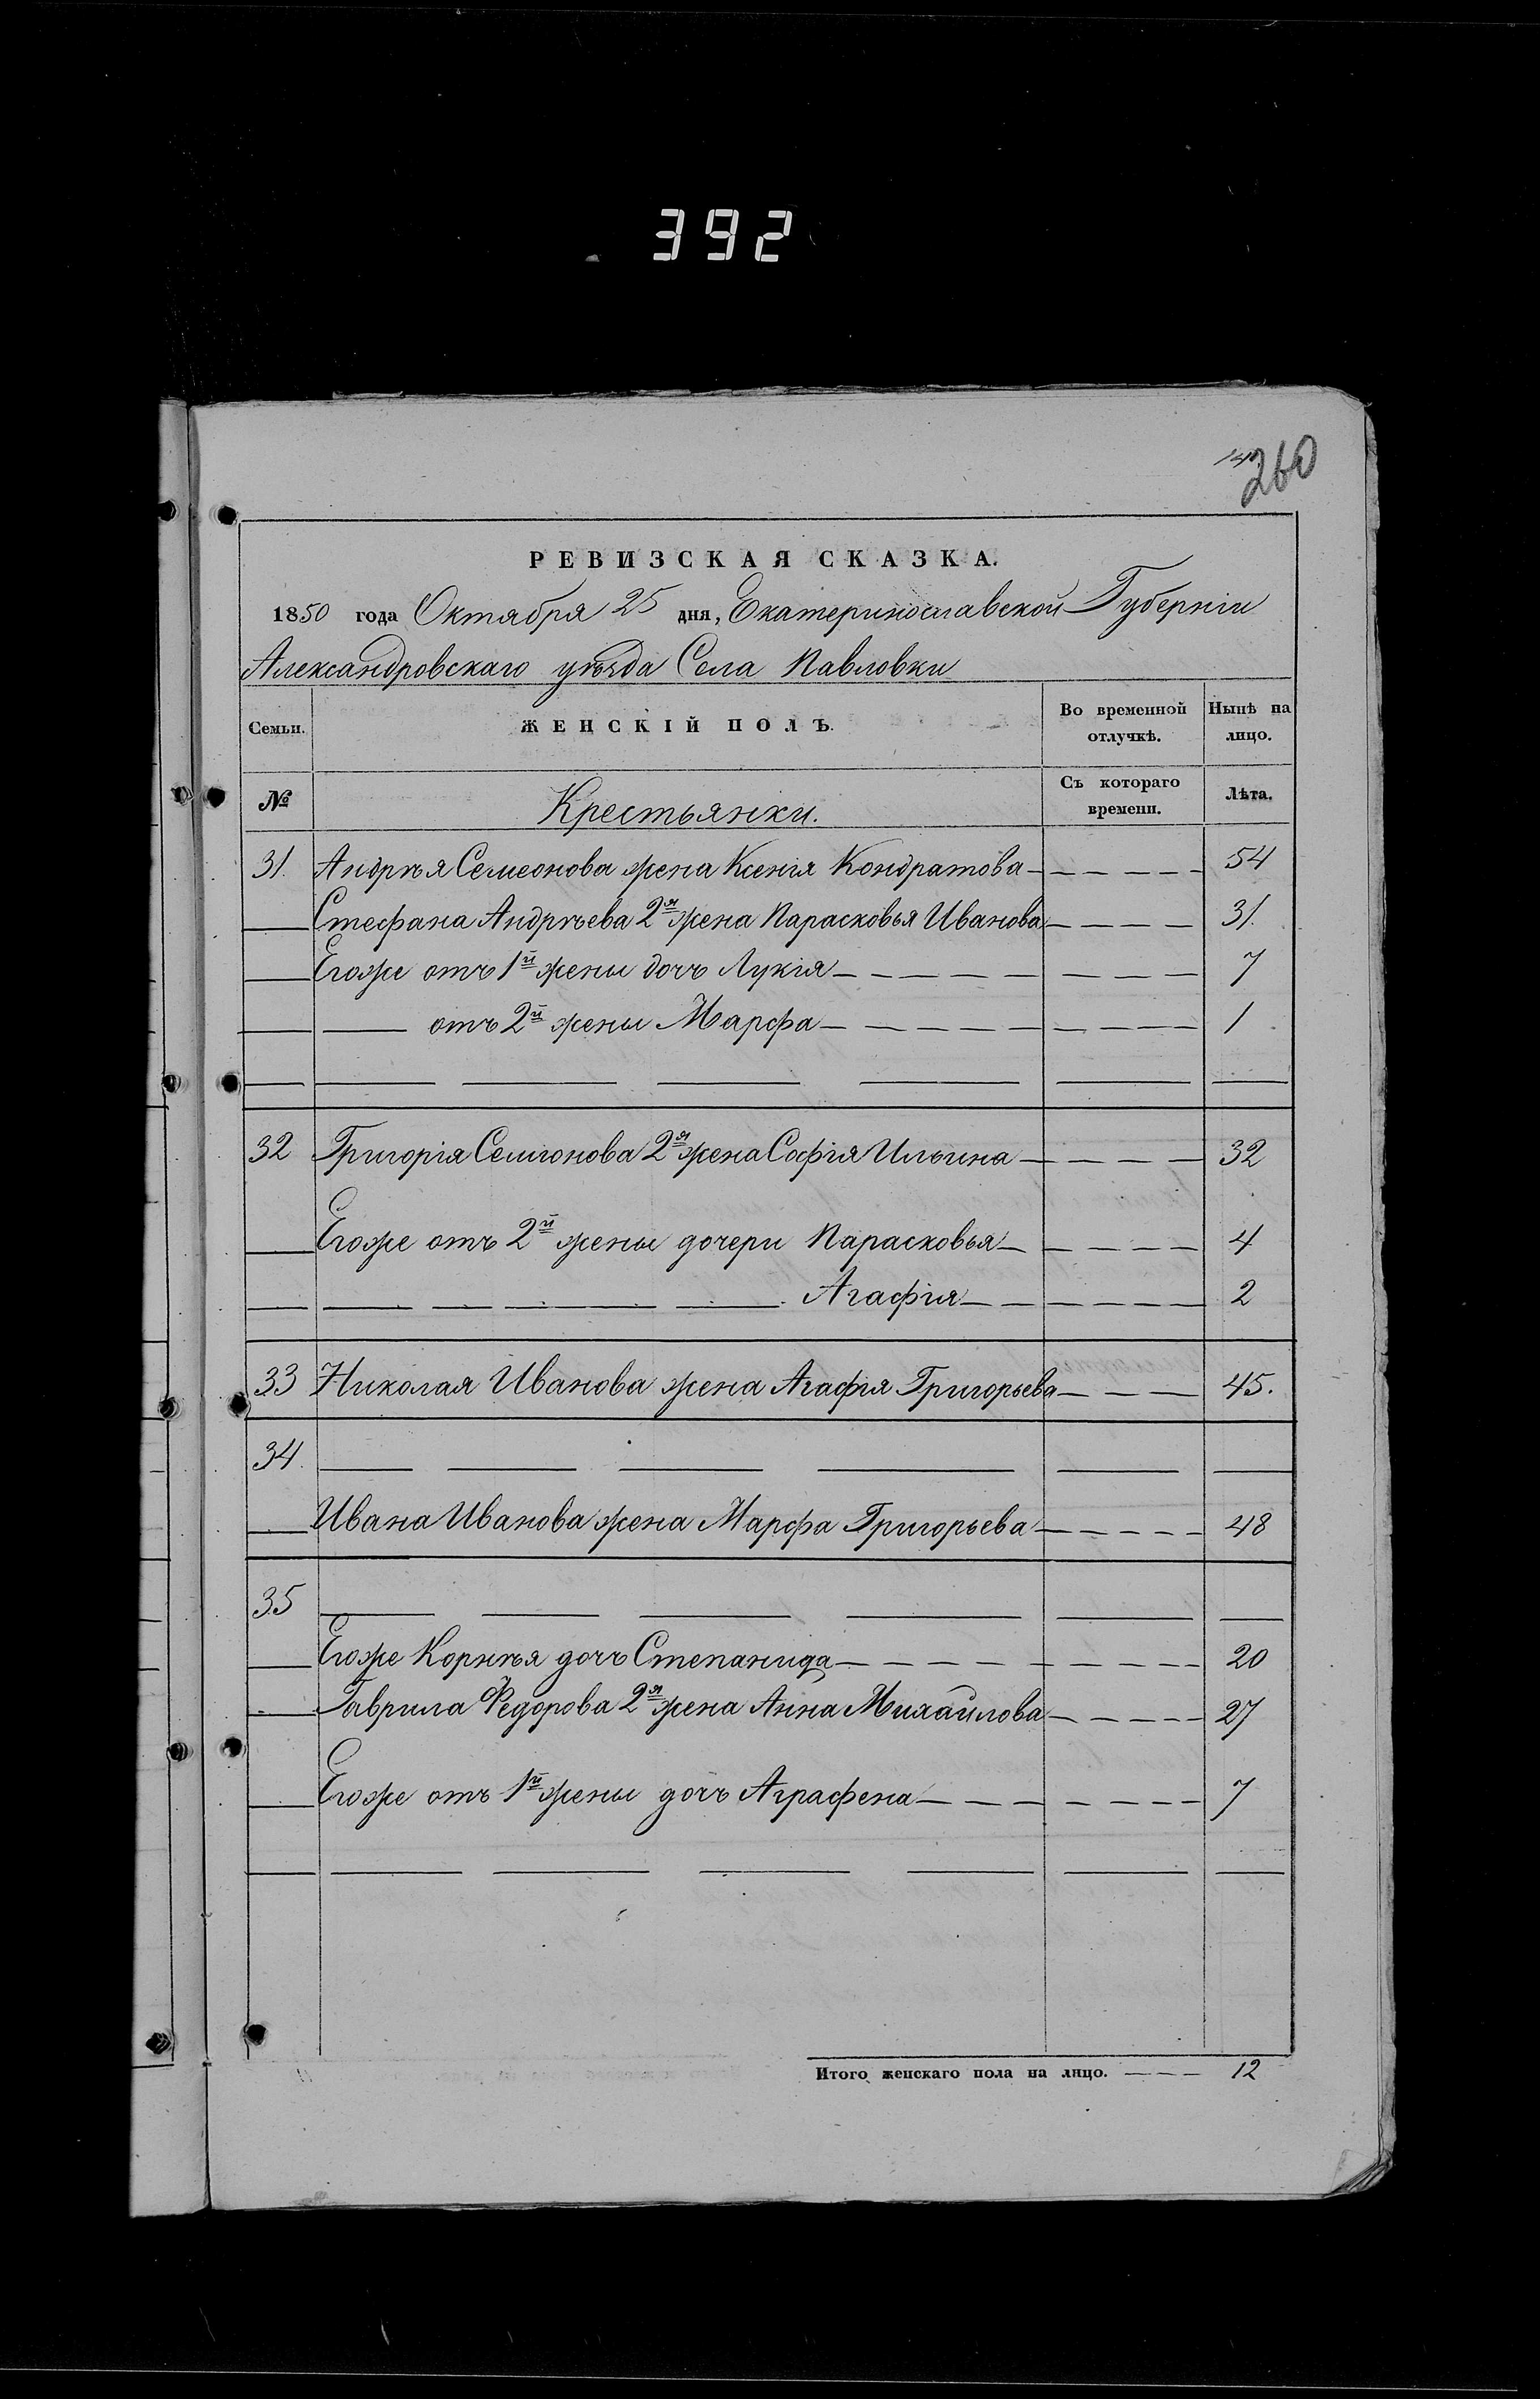 392
260
РЕВИЗСКАЯ СКАЗКА.
1850 года Октября 25 дня, Екатеринославской Губерніи
Александровскаго уѣзда Села Павловки
Семьи. ЖЕНСКІЙ ПОЛЪ. Во временной отлучкѣ. Нынѣ на лицо.
№ Крестьянки. Съ котораго времени. Лѣта.
31. Андрѣя Семеонова жена Ксенія Кондратова 54
Стефана Андрѣева 2я жена Парасковья Иванова 31.
Егоже отъ 1й жены дочь Лукія 7
отъ 2й жены Марфа 1
32 Григорія Семіонова 2я жена Софія Ильина 32
Егоже отъ 2й жены дочери Парасковья 4
Агафія 2
33 Николая Иванова жена Агафія Григорьева 45.
34.
Ивана Иванова жена Марфа Григорьева 48
35
Егоже Корнѣя дочь Степанида 20
Гаврила Федорова 2я жена Анна Михайлова 27
Егоже отъ 1й жены дочь Аграфена 7
Итого женскаго пола на лицо. 12